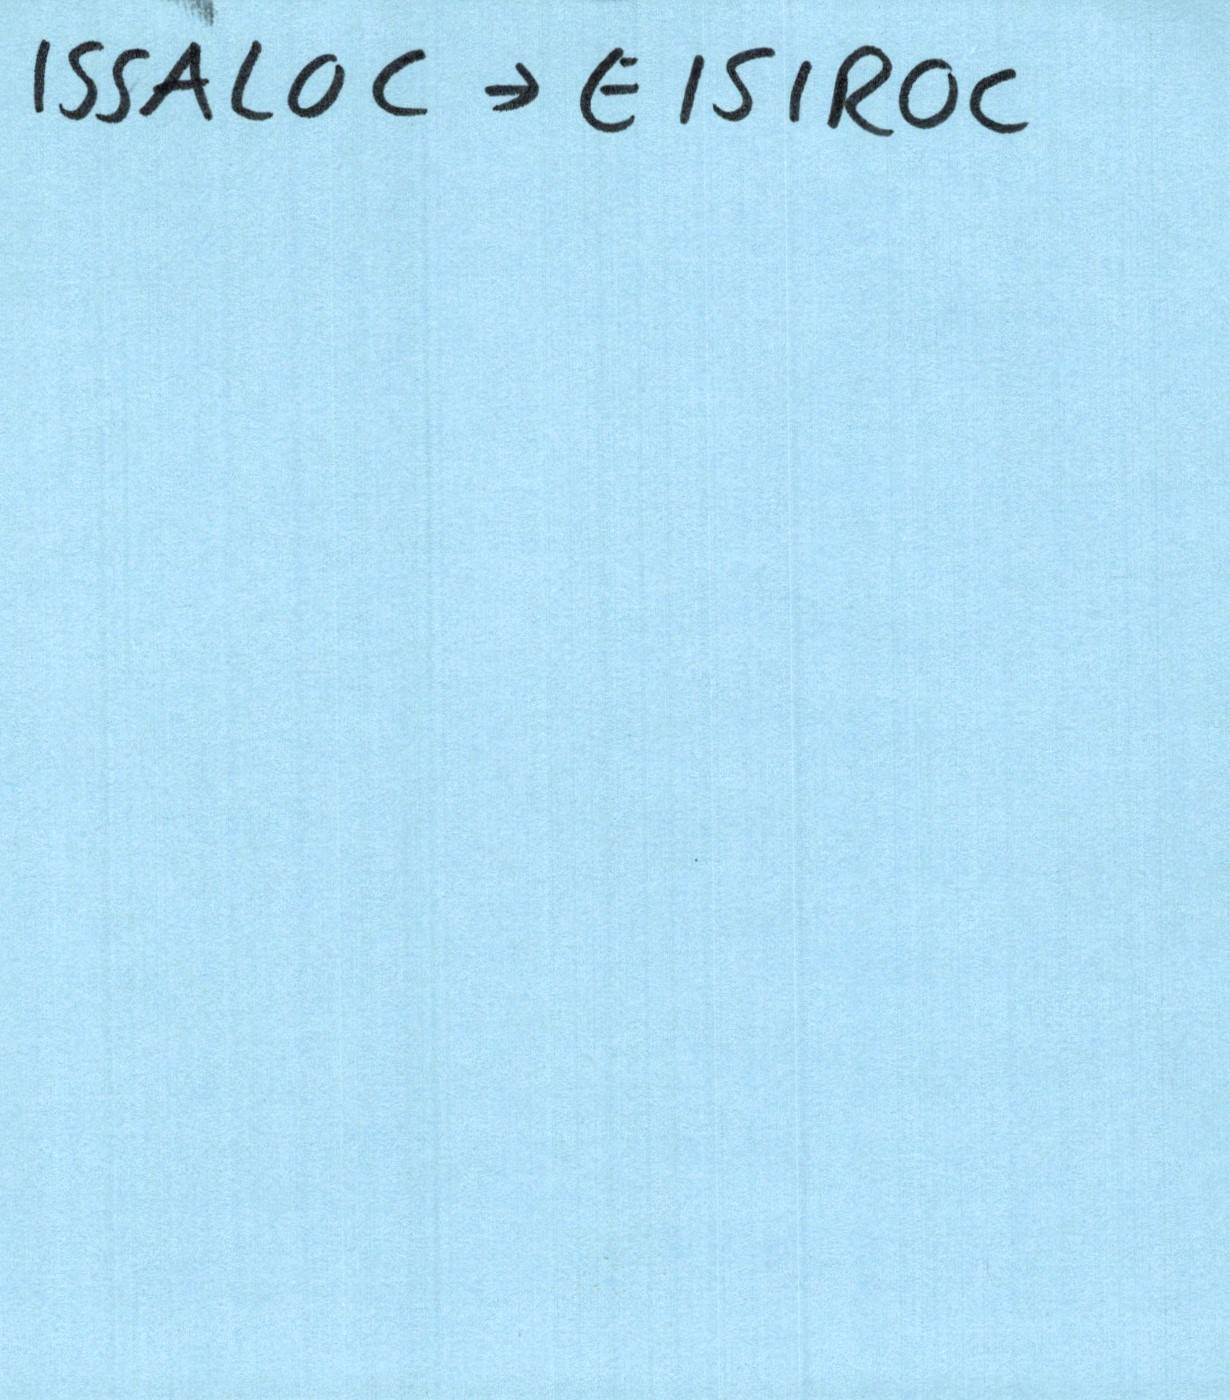 ISSALOC → EISIROC